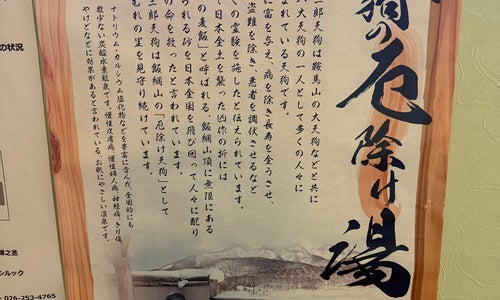 狗の厄除け湯
郎天狗は鞍馬山の大天狗などと共に
八大天狗の一人として多くの人々に
まれている天狗です。
に富を与え、病を除き長寿を全うさせ、
盗難を除き、悪者を調伏させるなど
くの霊験を施したと伝えられています。
て日本全土を襲った凶作の折には
の麦飯」と呼ばれる、飯綱山頂に無限にある
られる砂を日本全国を飛び回って人々に配り
の命を救ったと言われています。
三郎天狗は飯綱山の「厄除け天狗」として
むれの里を見守り続けています。
ナトリウム・カルシウム塩化物などを豊富に含んだ、全国的にも
数少ない炭酸水素鉱泉です。慢性皮膚病、慢性婦人病、神経痛、きり傷、
やけどなどに効果があると言われている、お肌にやさしい温泉です。
の状況
博之丞
ンルック
026-253-4765